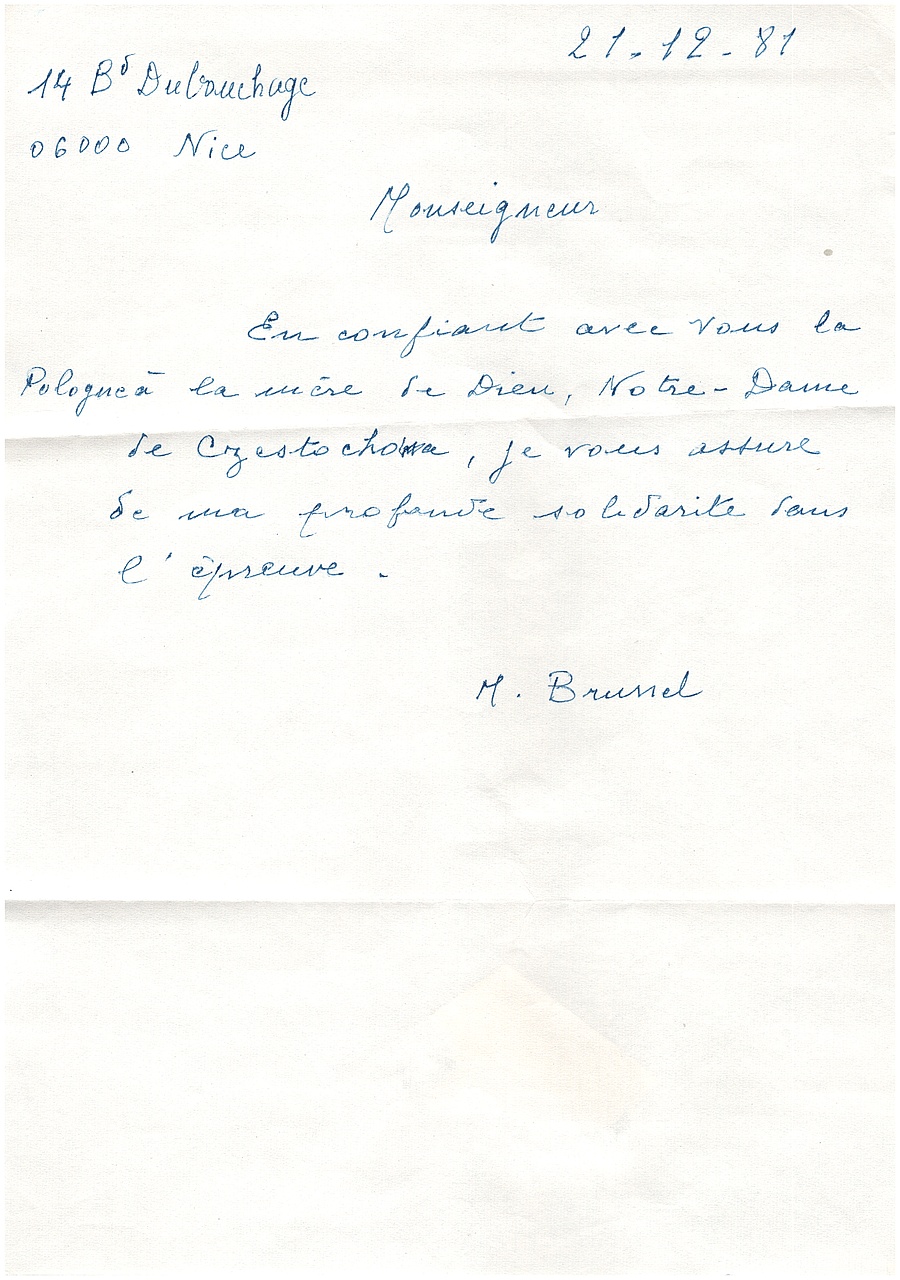 21-12-81
14 Bd Dubouchage
06000 Nice
Monseigneur
En confiant avec vous la
Pologne à la mère de Dieu, Notre-Dame
de Czestochowa, je vous assure
de ma profonde solidarité dans
l'épreuve.
M. Brussel